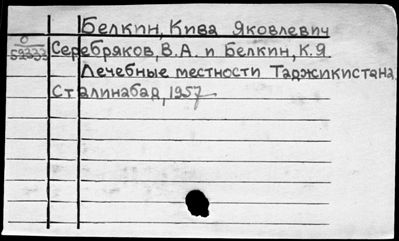 Белкин, Кива Яковлевич
О
59333 Серебряков, В.А. и Белкин, К.Я
Лечебные местности Таджикистана
Сталинабад, 1957